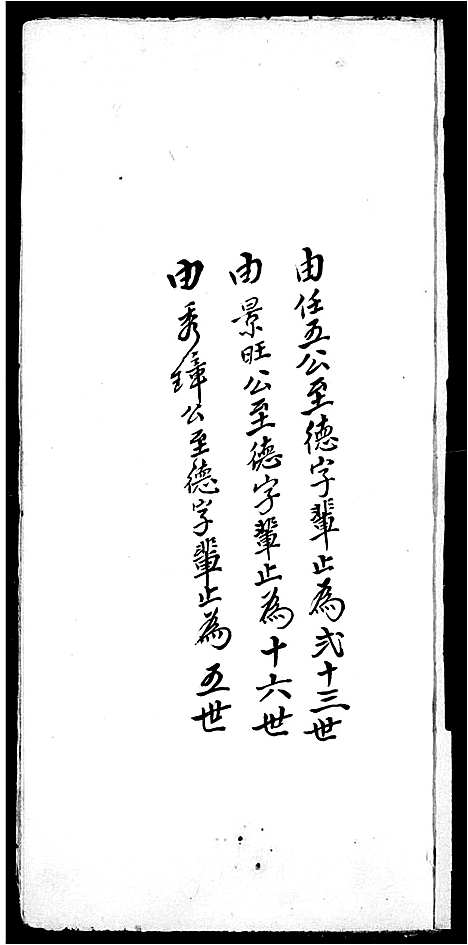 由任五公至德字輩止為弍十三世
由景旺公至德字輩止為十六世
由秀璋公至德字輩止為五世